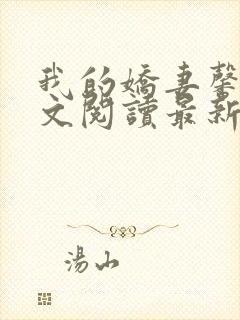 我的嬌妻馨
文閱讀最新
湯山